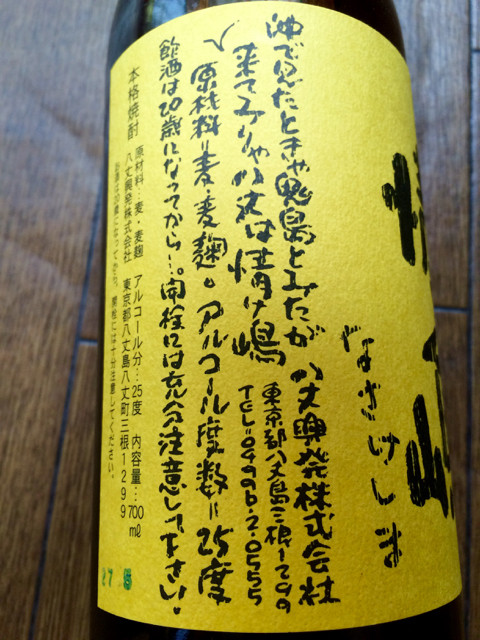 情け嶋
なさけしま
沖で見たときゃ鬼島とみたが
八丈興発株式会社
来てみりゃ八丈は情け嶋
東京都八丈島三根1299
TEL=04996.2.0555
原材料=麦・麦麹。アルコール度数=25度
飲酒は20歳になってから…。開栓には充分注意して下さい。
本格焼酎
原材料：麦・麦麹 アルコール分：25度 内容量：700㎖
八丈興発株式会社 東京都八丈島八丈町三根1299
飲酒は20歳になってから。開栓には十分注意してください。